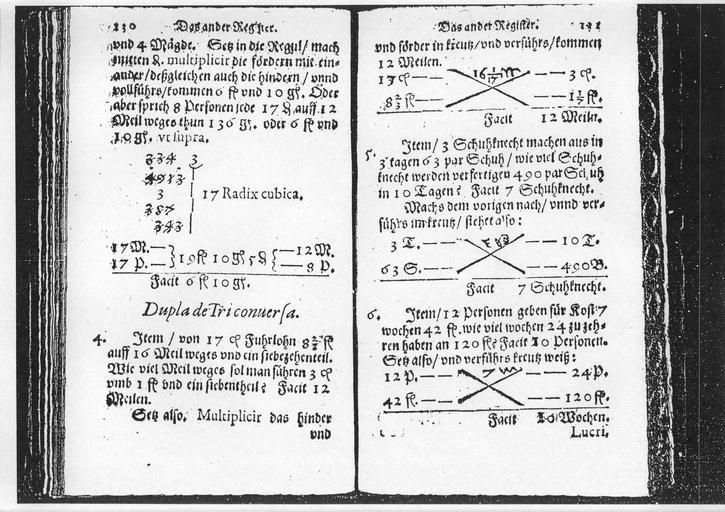 130 Das ander Register.
vnd 4 Mägde. Setz in die Regul/ mach
mitten &. multiplicir die fördern mit ein-
ander/ deßgleichen auch die hindern/ vnnd
vollführs/ kommen 6 fl vnd 10 gl. Oder
aber sprich 8 Personen jede 17 &. auff 12
Meil weges thun 136 gl. oder 6 fl vnd
10 gl. vt supra.
334 3
4913
3 17 Radix cubica.
343
17 M. 19 fl 10 gl 5 & 12 M.
17 P. 8 P.
Facit 6 fl 10 gl.
Dupla de Tri conuersa.
4. Item/ von 17 cl Fuhrlohn 8 2/3 fl
auff 16 Meil weges vnd ein siebezehenteil.
Wie viel Meil weges sol man führen 3 cl
vmb 1 fl vnd ein siebentheil? Facit 12
Meilen.
Setz also. Multiplicir das hinder
vnd
Das ander Register. 131
vnd förder in kreutz/ vnd verführs/ kommen
12 Meilen.
17 cl 16 1/17 M 3 cl.
8 2/3 fl 1 1/7 fl.
Facit 12 Meiln.
5. Item/ 3 Schuhknecht machen aus in
3 tagen 63 par Schuh/ wie viel Schuh-
knecht werden verfertigen 490 par Schuh
in 10 Tagen? Facit 7 Schuhknecht.
Machs dem vorigen nach/ vnnd ver-
führs im kreutz/ stehet also:
3 T. 10 T.
63 S. 490
Facit 7 Schuhknecht.
6. Item/ 12 Personen geben für Kost 7
wochen 42 fl. wie viel wochen 24 zu zeh-
ren haben an 120 fl? Facit 10 Personen.
Setz also/ vnd verführs kreutz weiß:
12 P. 7 W 24 P.
42 fl. 120 fl.
Facit 10 Wochen.
Lucri,